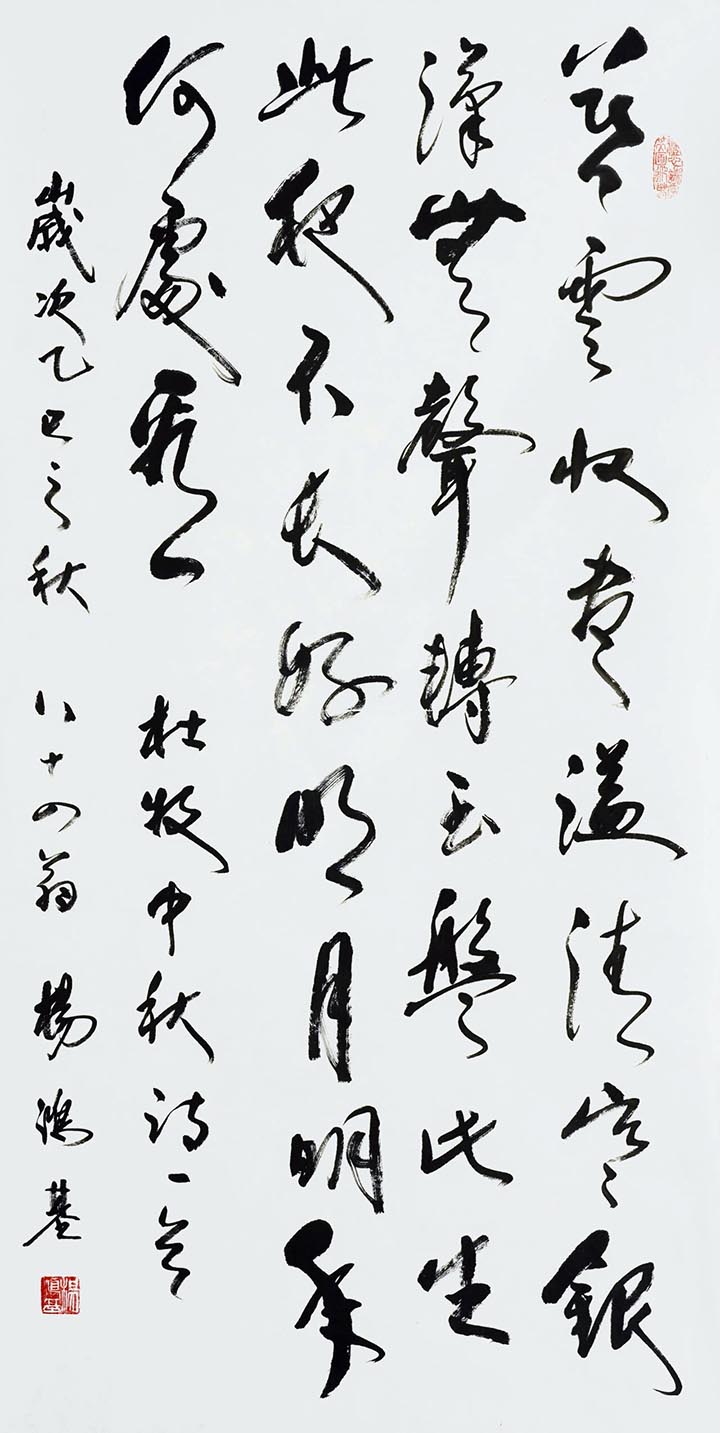 暮雲收盡溢清寒銀
漢無聲轉玉盤此生
此夜不長好明月明年
何處看 杜牧中秋詩一首
歲次乙巳之秋 八十四翁 楊鴻基